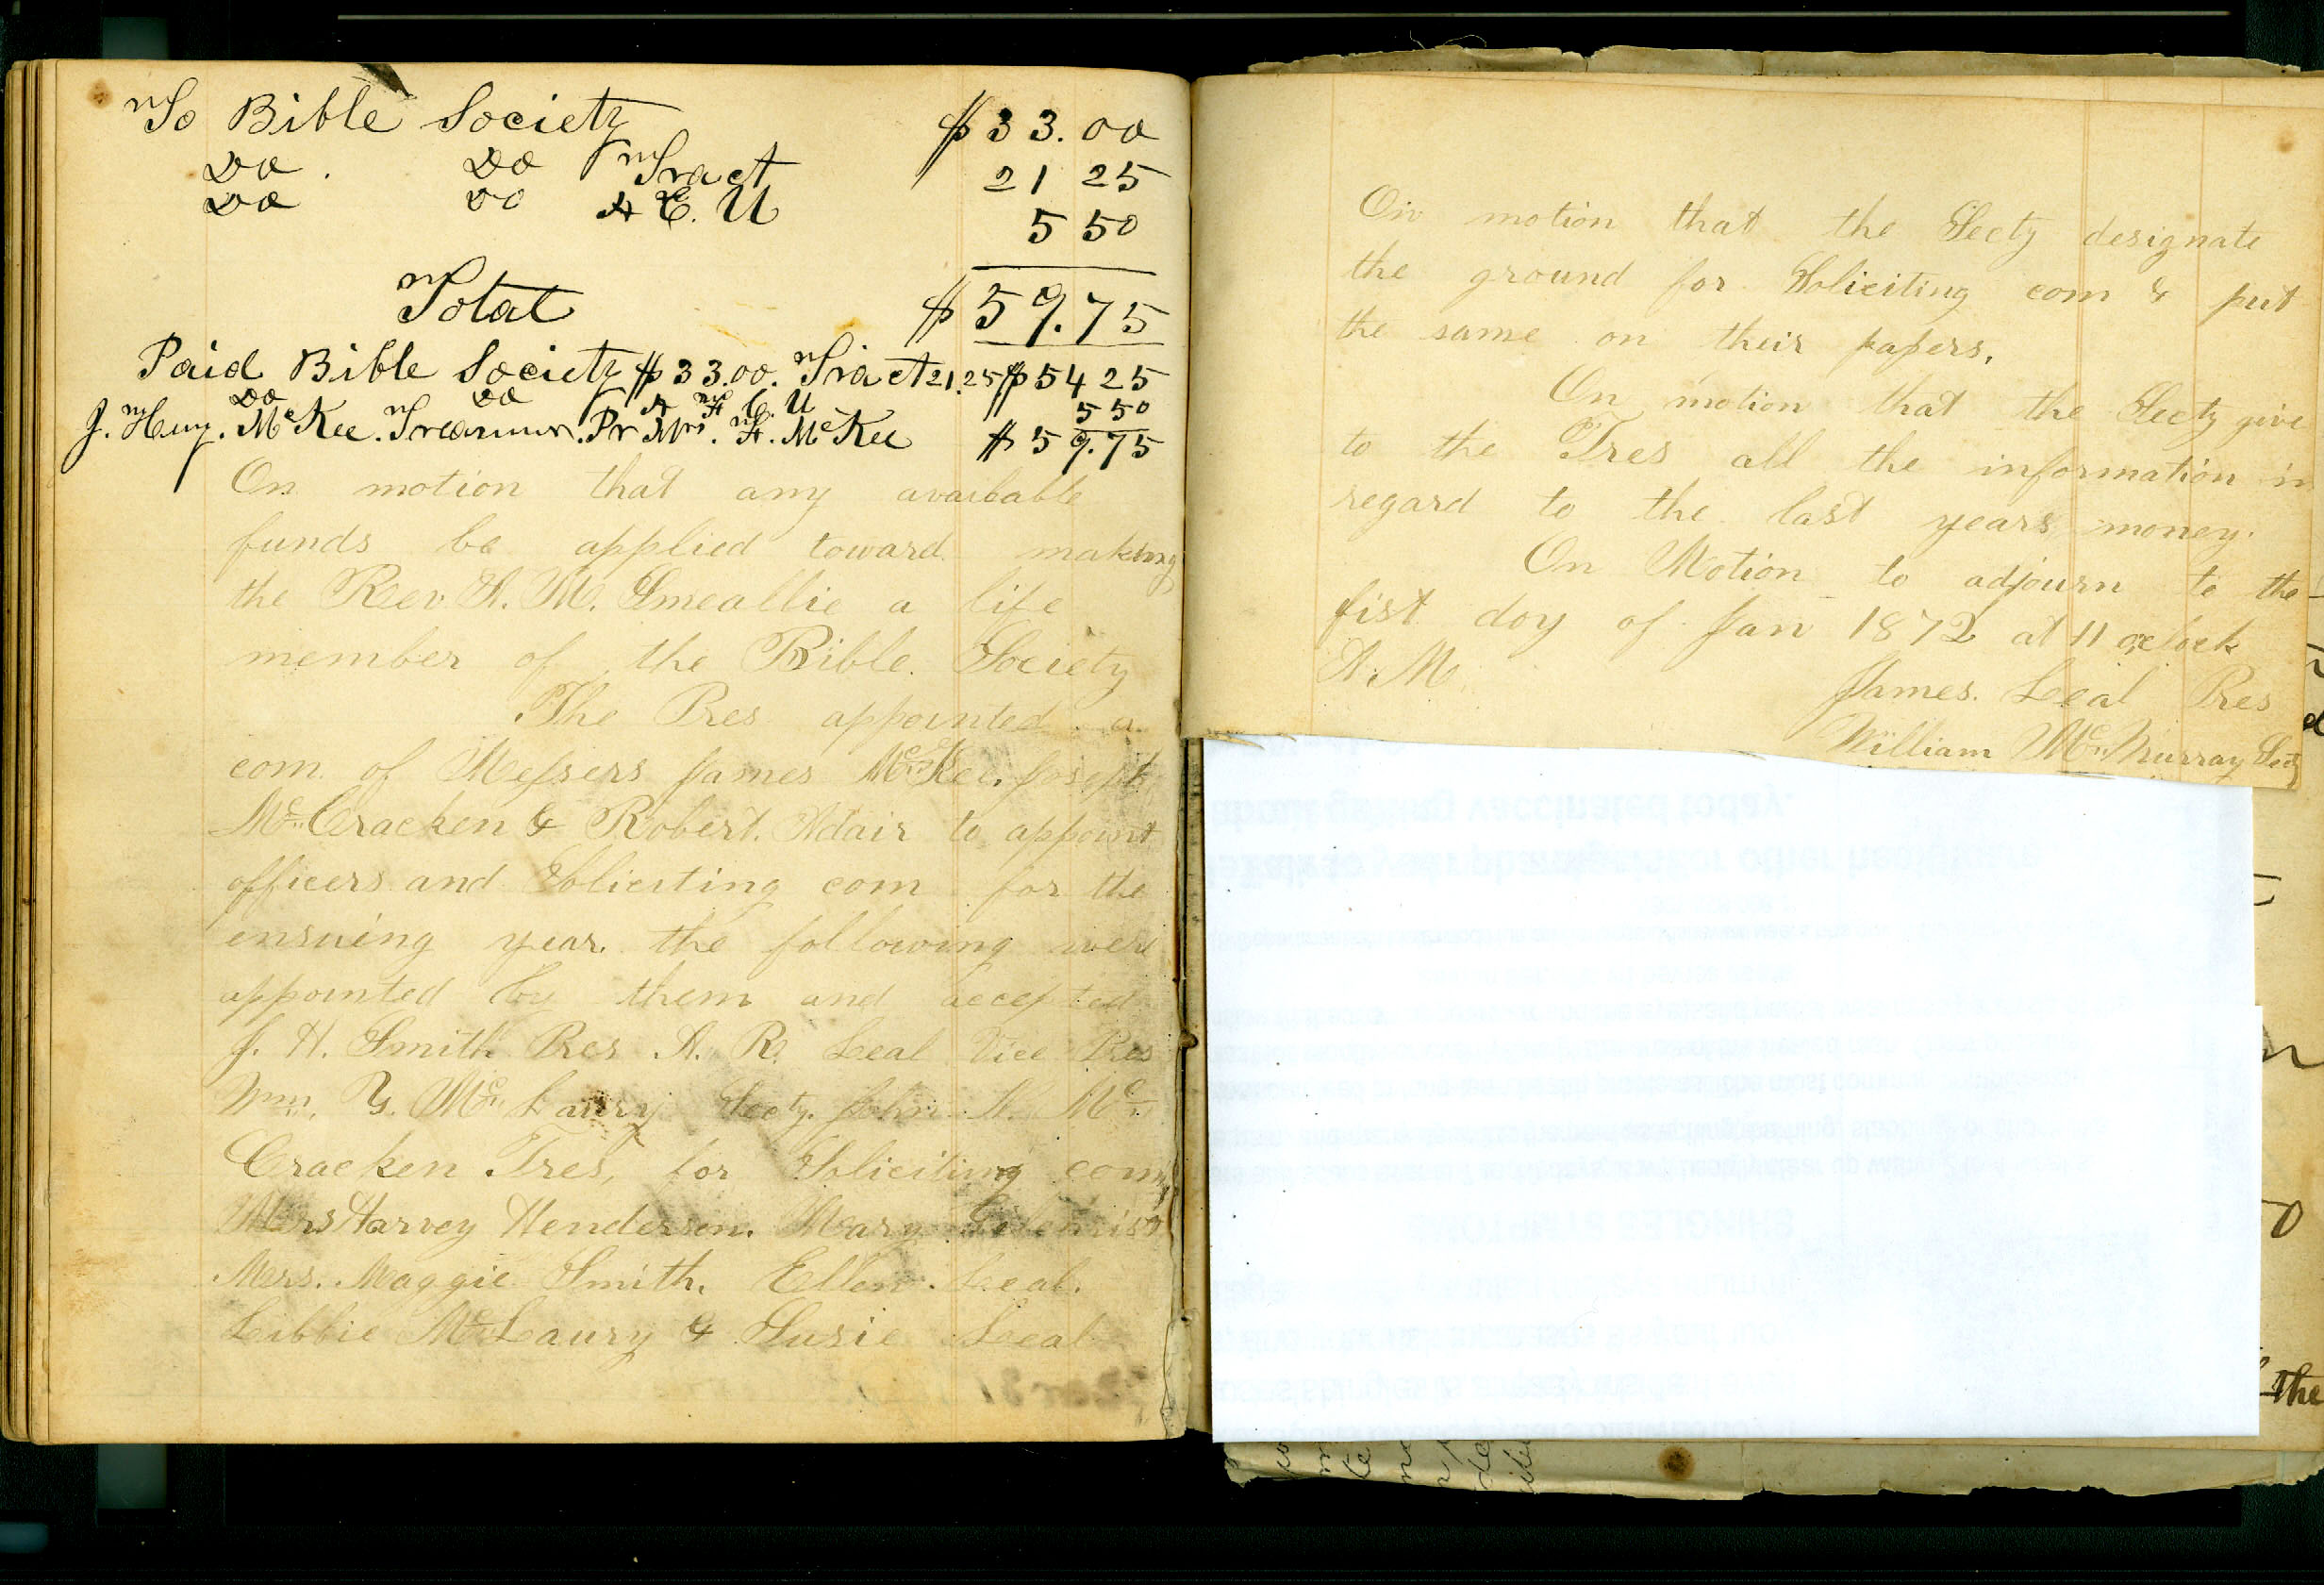 To Bible Society $33.00
Do. Do Tract 21 25
Do Do A C. U 5 50
Total $59.75
Paid Bible Society $33.00. Tract 21.25 $54 25
Do Do A F C. U 5 50
J. Huy. McKee. Treasurer. Pr Mrs. F. McKee $59.75
On motion that any available
funds be applied toward making
the Rev A. M. Smeallie a life
member of the Bible. Society
The Pres appointed a
com. of Messers James McKee. Joseph
McCracken & Robert. Adair to appoint
officers and Soliciting com for the
ensueing year. the following were
appointed by them and accepted
J. H. Smith Pres A. R. Leal Vice Pres
Wm. Y. Mc Laury Secty. John A. Mc
Cracken Tres, for Soliciting com,
Mrs Harvey Henderson. Mary Gilchrist
Mrs. Maggie Smith. Ellen. Leal.
Libbie McLaury & Susie Leal
On motion that the Secty designate
the ground for Soliciting com & put
the same on their papers,
On motion that the Secty give
to the Tres all the information in
regard to the last years money.
On Motion to adjourn to the
fist doy of Jan 1872 at 11 oclock
A. M.
James. Leal Pres
William McMurray Secty
the